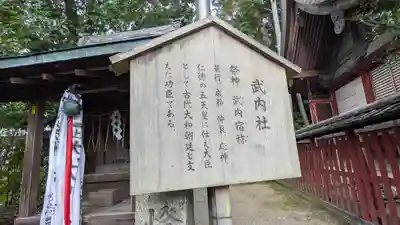 武内社
祭神 武内宿祢
景行、成務、仲哀、応神
仁徳の五天皇に仕えた大臣
として古代大和朝廷を支
えた功臣である